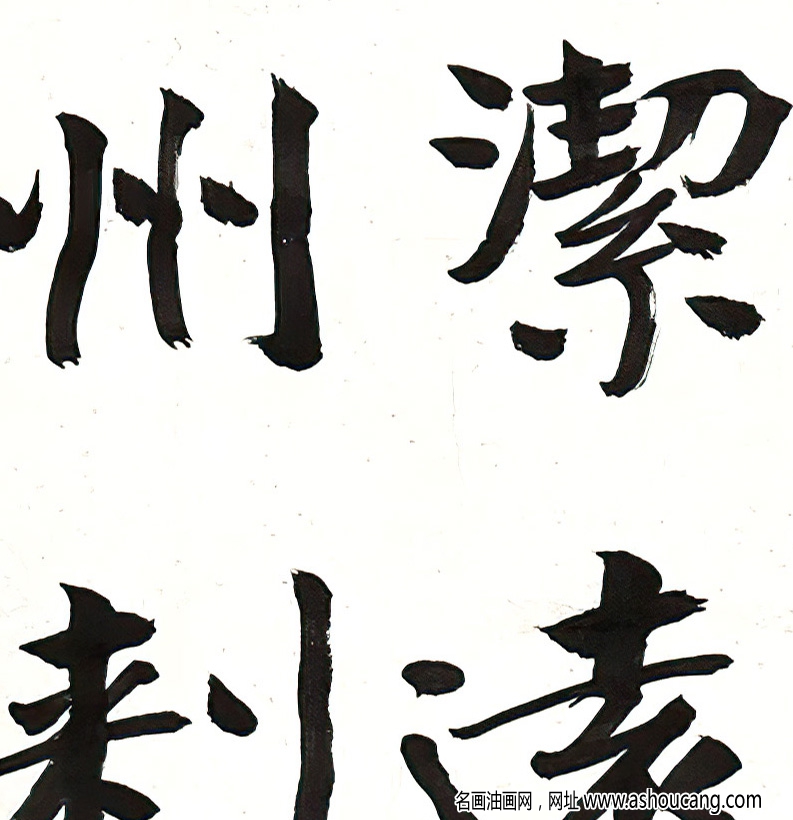 潔遠
州刺
名画油画网，网址 www.ashoucang.com